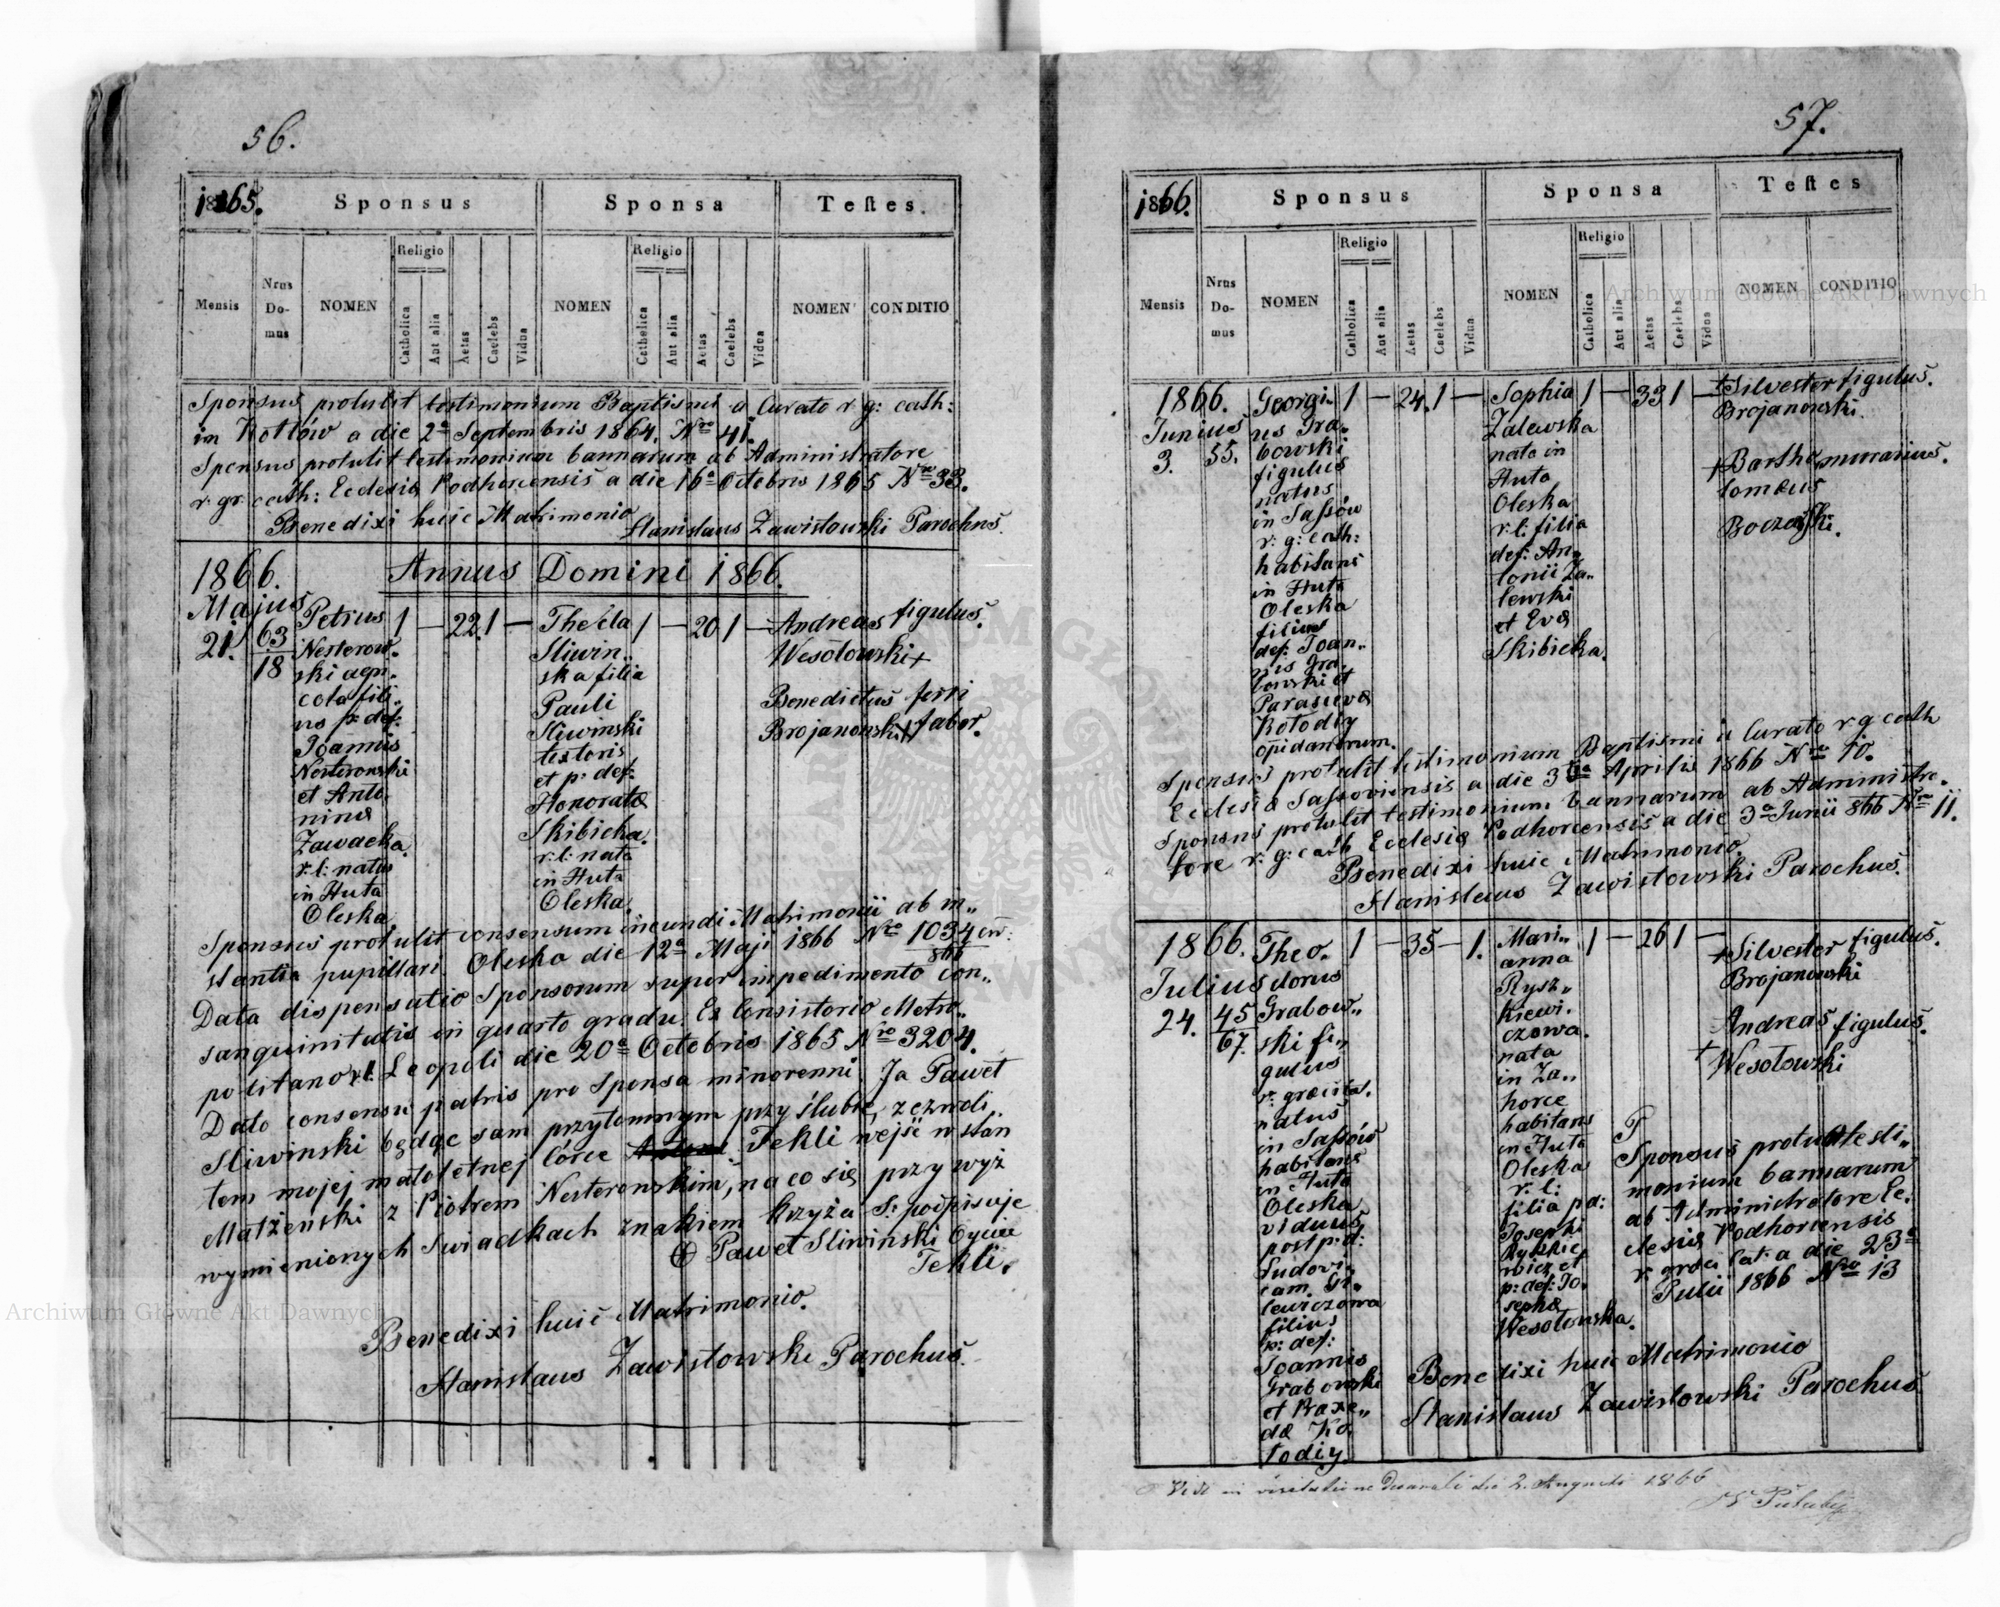 56.
1865.
Sponsus
Sponsa
Teſtes.
Mensis
Nrus Domus
NOMEN
Religio
Catholica
Aut alia
Aetas
Caelebs
Vidua
NOMEN
Religio
Catholica
Aut alia
Aetas
Caelebs
Vidua
NOMEN
CONDITIO
Sponsus protulit testimonium Baptismi a Curato r. g: cath:
in Kołtów a die 2a Septembris 1864. Nro 41.
Sponsus protulit testimonium bannarum ab Administratore
r. gr. cath: Ecclesiæ Podhorcensis a die 16a Octobris 1865 Nro 33.
Benedixi huic Matrimonio
Stanislaus Zawisłowski Parochus.
1866.
Annus Domini 1866.
Majus
21.
63
18
Petrus
Nesterow-
ski agri-
cola fili-
us p: def:
Joannis
Nesterowski
et Anto-
ninæ
Zawacka.
r: l: natus
in Huta
Oleska
1 — 22. 1 —
Thecla
Sliwin-
ska filia
Pauli
Sliwinski
textoris
et p: def:
Honoratæ
Skibicka.
r: l: nata
in Huta
Oleska.
1 — 20 1 —
Andreas figulus.
Wesołowski +
Benedictus ferri
Brojanowski + faber.
Sponsus protulit consensum ineundi Matrimonii ab in-
stantia pupillari Olesko die 12a Maji 1866 Nro 1034 civ:
866
Data dispensatio Sponsorum super impedimento con-
sanguinitatis in quarto gradu. Ex Consistorio Metro-
politano r. l. Leopoli die 20a Octobris 1865 Nro 3204.
Dato consensu patris pro Sponsa minorenni. Ja Paweł
Sliwinski będąc sam przytomnym przy ślubie, zezwoli-
łem mojej małoletnej Córce Tekli wejść w stan
Małżenski z Piotrem Nesterowskim, na co się przy wyż
wymienionych świadkach znakiem krzyża S: podpisuje
Paweł Sliwinski Ojciec
Tekli.
Benedixi huic Matrimonio.
Stanislaus Zawisłowski Parochus.
57.
1866.
Sponsus
Sponsa
Teſtes
Mensis
Nrus Domus
NOMEN
Religio
Catholica
Aut alia
Aetas
Caelebs
Vidua
NOMEN
Religio
Catholica
Aut alia
Aetas
Caelebs
Vidua
NOMEN
CONDITIO
1866.
Junius
3.
55.
Georgi-
us Gra-
bowski
figulus
natus
in Sassów
r: g: cath:
habitans
in Huta
Oleska
filius
def: Joan-
nis Gra-
bowski et
Parascevæ
Kołodiy
opidanorum.
1 — 24. 1 —
Sophia
Zalewska
nata in
Huta
Oleska
r: l: filia
def: An-
tonii Za-
lewski
et Evæ
Skibicka.
1 — 33 1 —
+ Silvester figulus.
Brojanowski.
+ Bartho murarius.
lomæus
Boczański.
Sponsus protulit testimonium Baptismi a Curato r g cath
Ecclesiæ Sassoviensis a die 3a Aprilis 1866 Nro 10.
Sponsus protulit testimonium bannarum ab Administra-
tore r: g: cath Ecclesiæ Podhorcensis a die 3a Junii 866 Nro 11.
Benedixi huic Matrimonio.
Stanislaus Zawisłowski Parochus.
1866.
Julius
24.
45
67.
Theo-
dorus
Grabow-
ski fi-
gulus
natus
in Sassów
habitans
in Huta
Oleska
viduus
post p. d:
Ludovi-
cam
filius
p: def:
Joannis
Grabowski
et Baxe-
dæ Ko-
łodiy
1 — 35 — 1.
Mari-
anna
Rysz-
kiewi-
czowa.
nata
in Za-
horce
habitans
in Huta
Oleska
r: l:
filia p d:
Josephi
Ryszkie-
wicz et
p: def: Jo-
sephæ
Wesołowska.
1 — 26 1 —
+ Silvester figulus.
Brojanowski
Andreas figulus.
+ Wesołowski
Sponsus protulit testi-
monium bannarum
ab Administratore Ec-
clesiæ Podhorcensis
r. græci cat: a die 23a
Julii 1866 Nro 13
Benedixi huic Matrimonio
Stanislaus Zawisłowski Parochus
Vidi in visitatione Decanali die 2. Augusti 1866
Archiwum Główne Akt Dawnych
Archiwum Główne Akt Dawnych